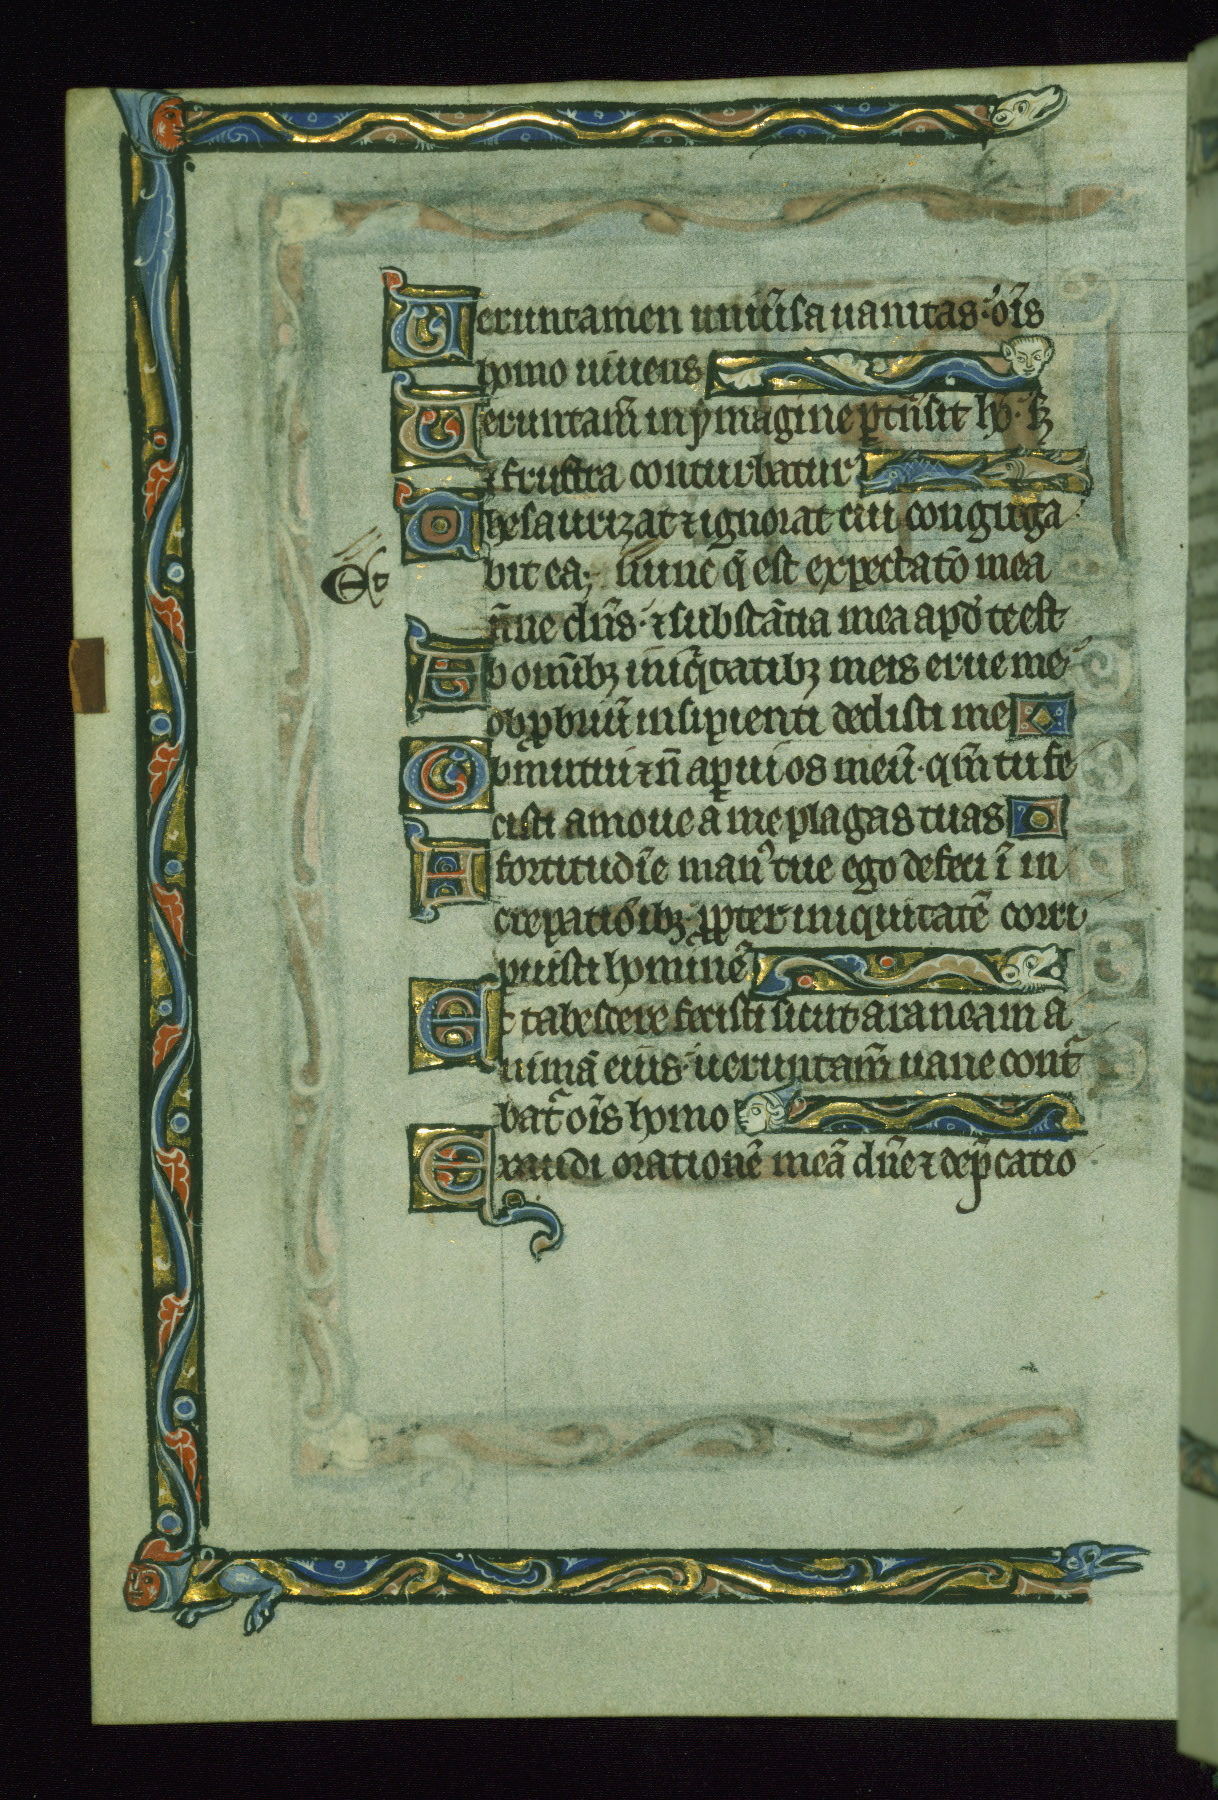 Ueruntamen uniũsa uanitas· oĩs
homo uiuens
Ueruntam̃ in ymagine ptñsit hõ· s&
⁊ frustra conturbatur
Thesaurizat ⁊ ignorat cui congrega
bit ea; Et nunc q̃ est expectat̃o mea
ñne dñs· ⁊ substãtia mea apd' te est
Ab omĩbꝫ iniq̃tatibꝫ meis erue me
obꝓbriũ insipienti dedisti me
Obmutui ⁊ ñ aperui os meũ· qm̃ tu fe
cisti amoue a me plagas tuas
A fortitudĩe manꝰ tue ego defeci ĩ in
crepatiõibꝫ· ꝓpter iniquitatẽ corri
puisti hominẽ
Et tabescere fecisti sicut araneam a
nimã eius· ueruntam̃ uane cont̃
bat̃ oĩs homo
Exaudi orationẽ meã dñe ⁊ dep̃catio